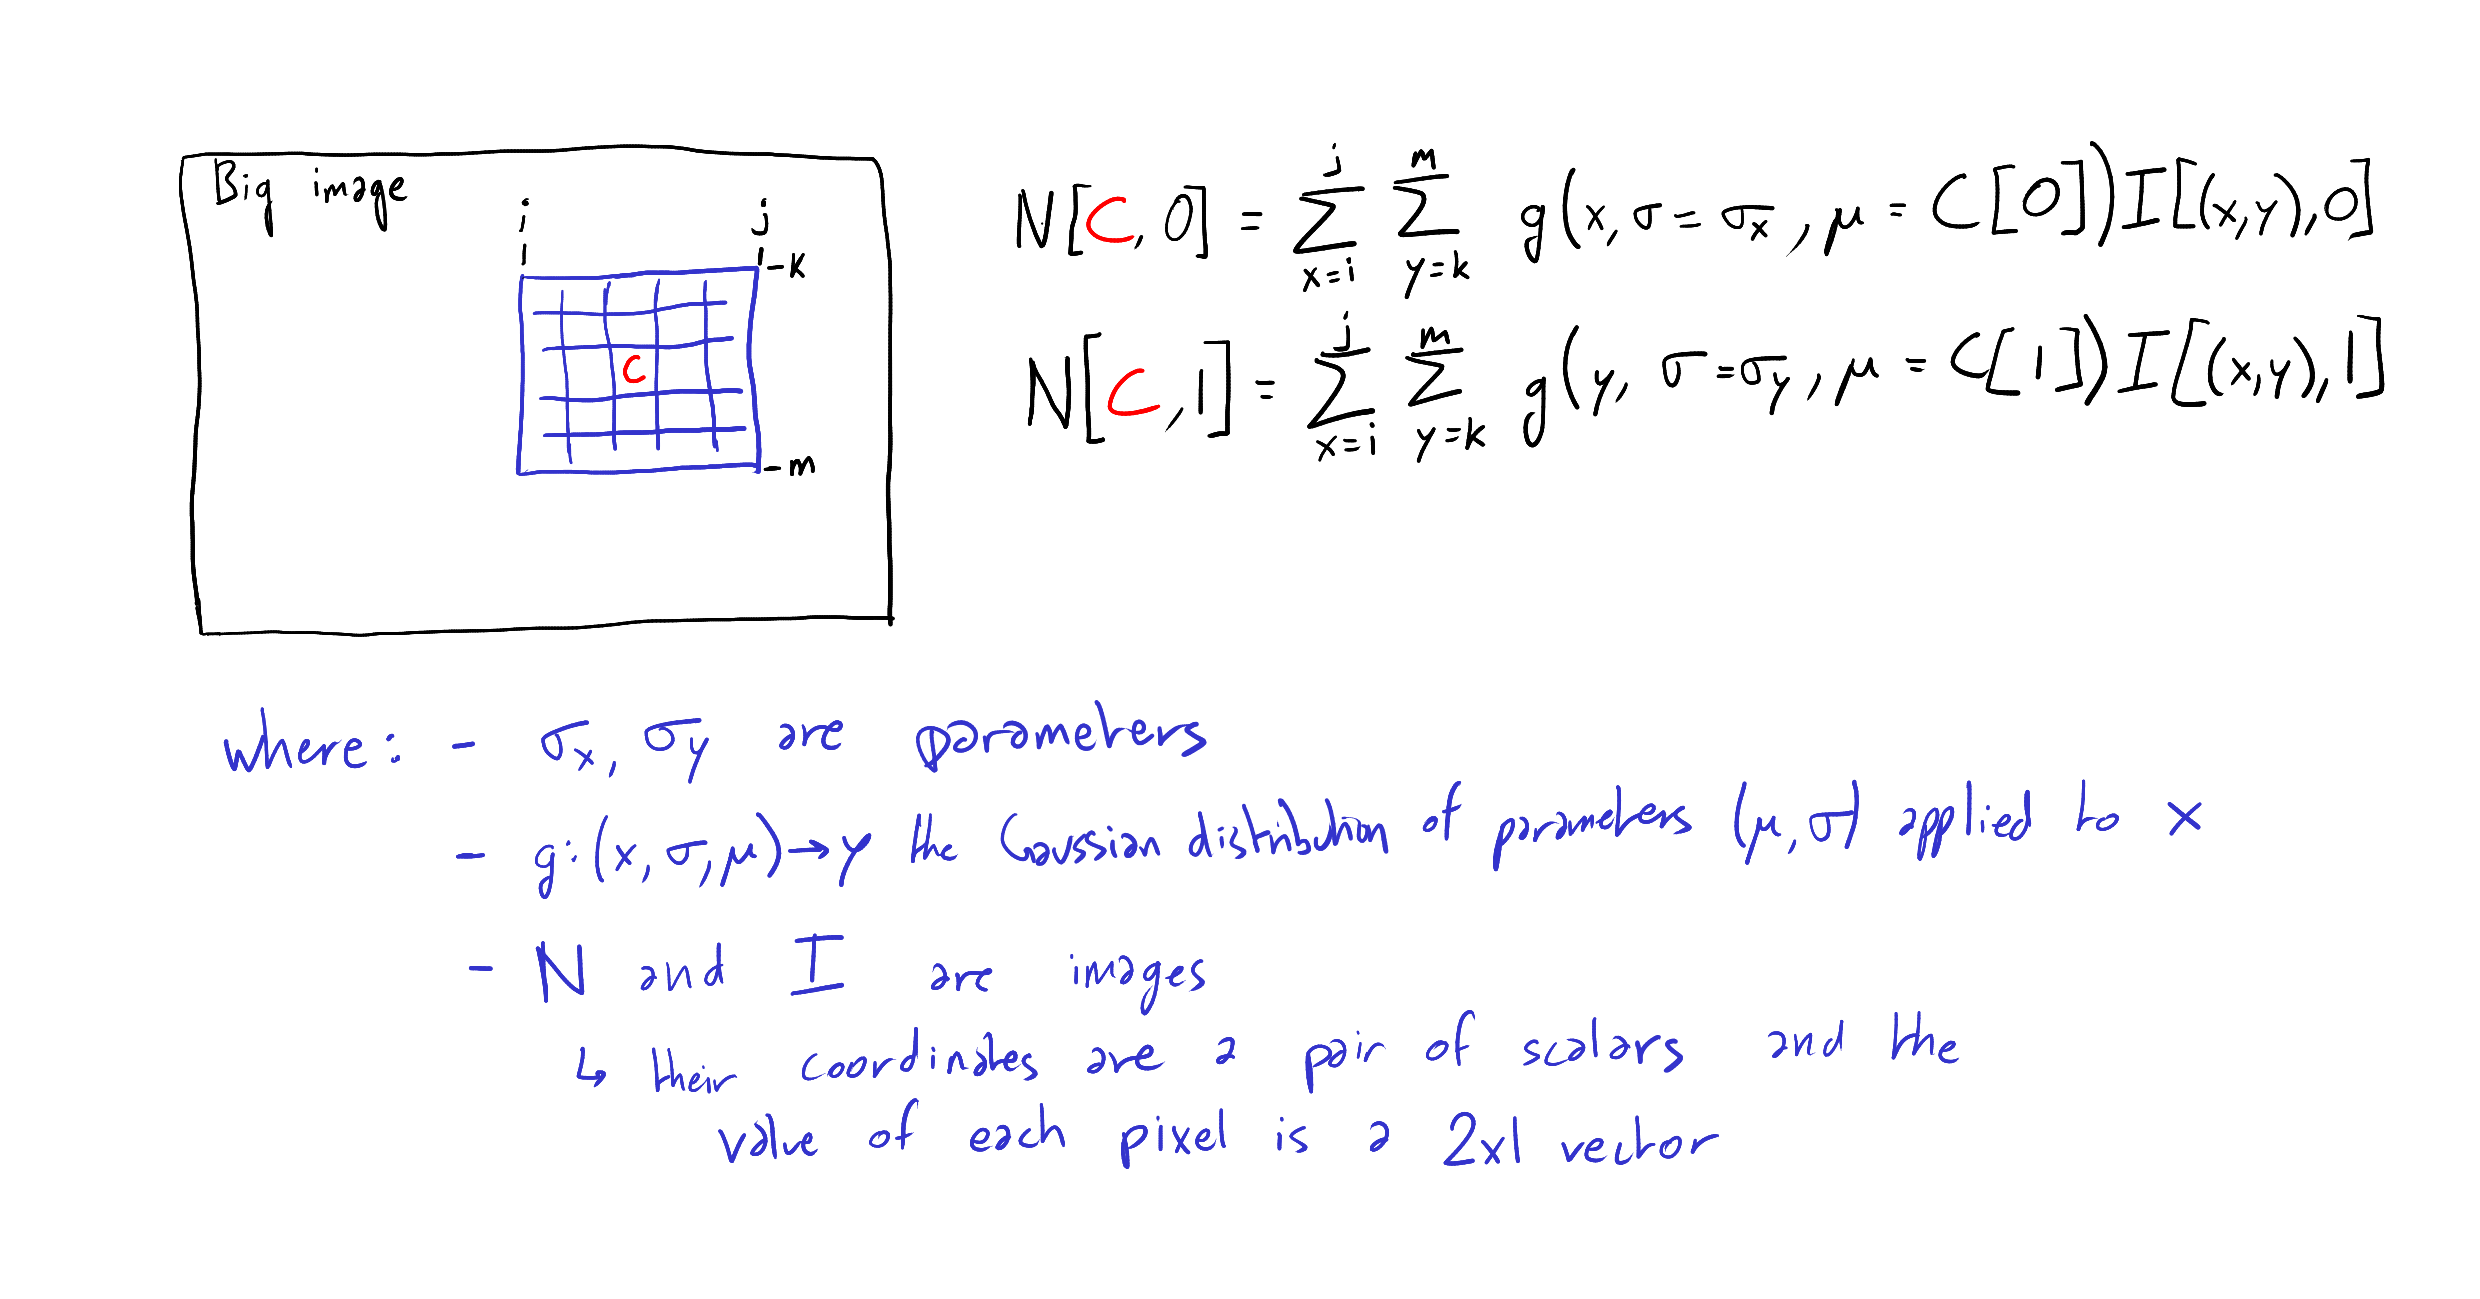 Big image
i
j
k
C
m
N[C, 0] = ∑_{x=i}^{j} ∑_{y=k}^{m} g(x, σ = σ_x, μ = C[0]) I[(x,y), 0]
N[C, 1] = ∑_{x=i}^{j} ∑_{y=k}^{m} g(y, σ = σ_y, μ = C[1]) I[(x,y), 1]
where: - σ_x, σ_y are parameters
- g: (x, σ, μ) → y the Gaussian distribution of parameters (μ, σ) applied to x
- N and I are images
↳ their coordinates are a pair of scalars and the
value of each pixel is a 2x1 vector